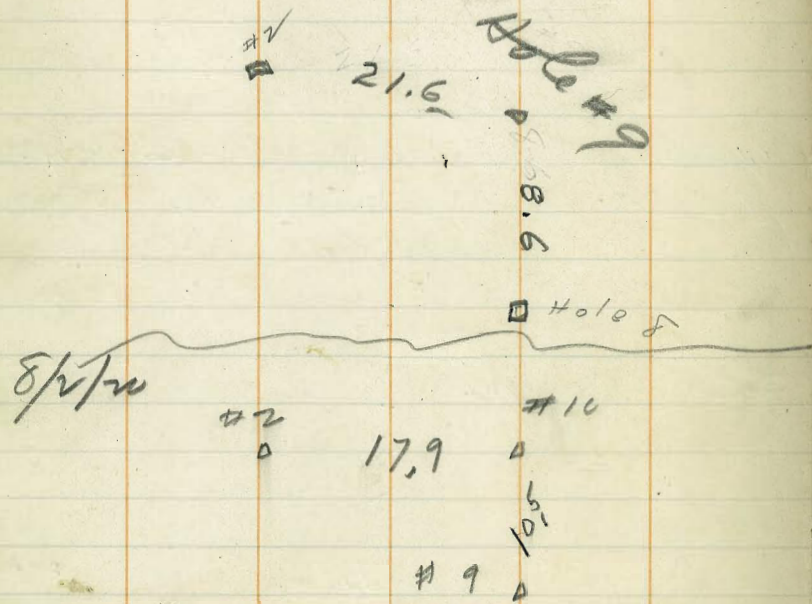 #2
21.6
Hole #9
8.6
Hole 8
8/2/20
#2
17.9
#10
#9